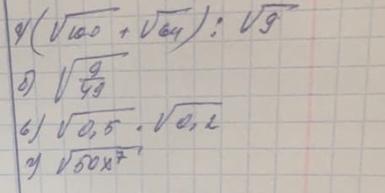 а) (√100 + √64) : √9
б) √(9/49)
в) √0,5 · √0,2
г) √50x⁷